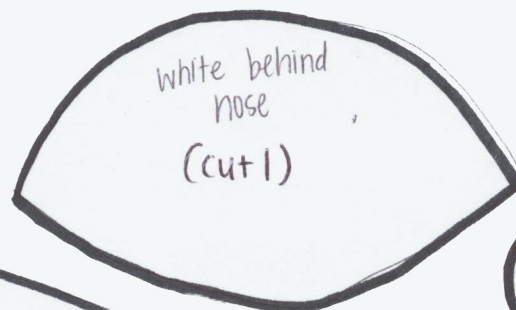 white behind
nose
(cut 1)